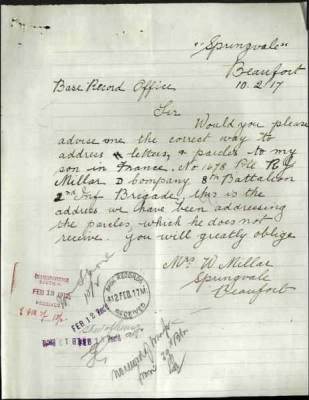 "Springvale"
Beaufort
10.2.17
Base Record Office
Sir
Would you please
advise me the correct way to
address letters, & parcles to my
son in France, No. 1678 Pte R J
Millar D Company 8th Battalion
2nd Inf Brigade, this is the
address we have been addressing
the parcles, which he does not
receive. You will greatly oblige
Mrs W. Millar
Springvale
Beaufort
BASE RECORDS
12 FEB. 17
RECEIVED
FEB 13 1917
FEB 12 1917
FEB 13